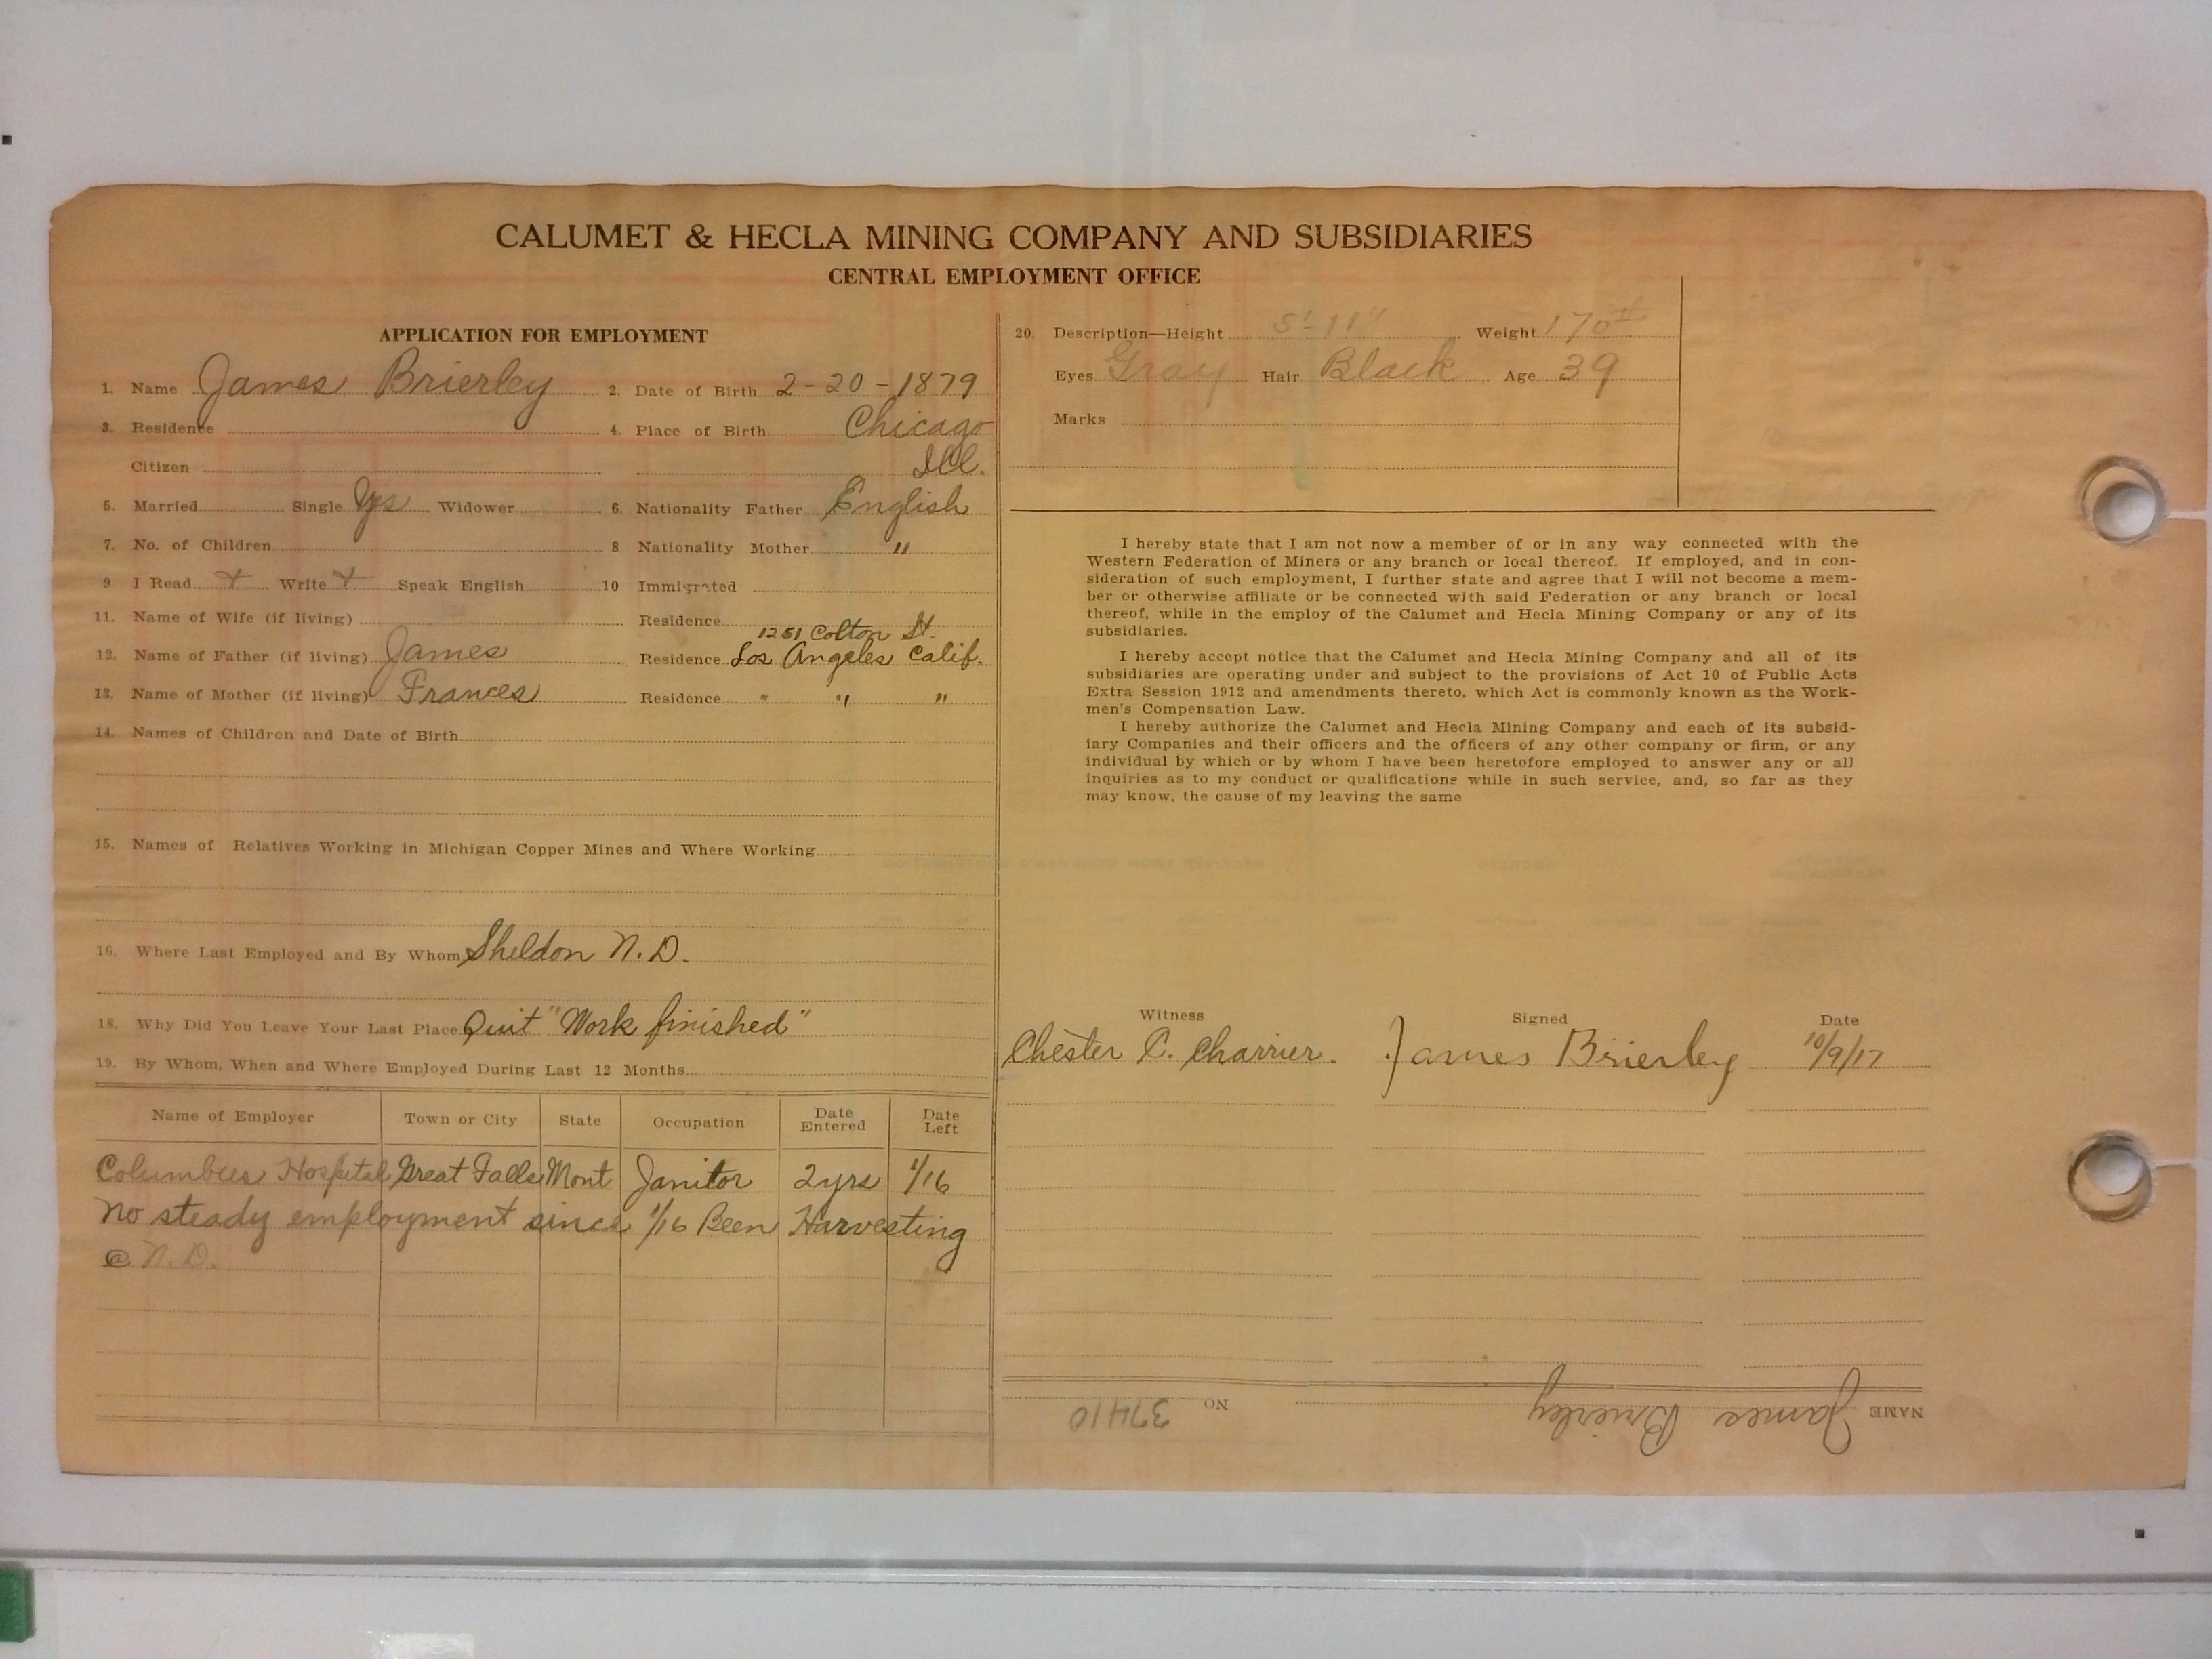 CALUMET & HECLA MINING COMPANY AND SUBSIDIARIES
CENTRAL EMPLOYMENT OFFICE
APPLICATION FOR EMPLOYMENT
1. Name James Brierley 2. Date of Birth 2-20-1879
3. Residence 4. Place of Birth Chicago
Citizen Ill.
5. Married Single Yes Widower 6. Nationality Father English
7. No. of Children 8 Nationality Mother "
9 I Read + Write + Speak English 10 Immigrated
11. Name of Wife (if living) Residence
1251 Colton St.
12. Name of Father (if living) James Residence Los Angeles Calif.
13. Name of Mother (if living) Frances Residence " " "
14. Names of Children and Date of Birth
15. Names of Relatives Working in Michigan Copper Mines and Where Working
16. Where Last Employed and By Whom Sheldon N.D.
18. Why Did You Leave Your Last Place Quit "Work finished"
19. By Whom, When and Where Employed During Last 12 Months
Name of Employer Town or City State Occupation Date Entered Date Left
Columbus Hospital Great Falls Mont Janitor 2yrs 1/16
No steady employment since 1/16 Been Harvesting
@ N.D.
20. Description—Height 5'-11" Weight 170#
Eyes Gray Hair Black Age 39
Marks
I hereby state that I am not now a member of or in any way connected with the
Western Federation of Miners or any branch or local thereof. If employed, and in con-
sideration of such employment, I further state and agree that I will not become a mem-
ber or otherwise affiliate or be connected with said Federation or any branch or local
thereof, while in the employ of the Calumet and Hecla Mining Company or any of its
subsidiaries.
I hereby accept notice that the Calumet and Hecla Mining Company and all of its
subsidiaries are operating under and subject to the provisions of Act 10 of Public Acts
Extra Session 1912 and amendments thereto, which Act is commonly known as the Work-
men's Compensation Law.
I hereby authorize the Calumet and Hecla Mining Company and each of its subsid-
iary Companies and their officers and the officers of any other company or firm, or any
individual by which or by whom I have been heretofore employed to answer any or all
inquiries as to my conduct or qualifications while in such service, and, so far as they
may know, the cause of my leaving the same
Witness Signed Date
Chester C. Charrier. James Brierley 10/9/17
NAME James Brierley NO 37410